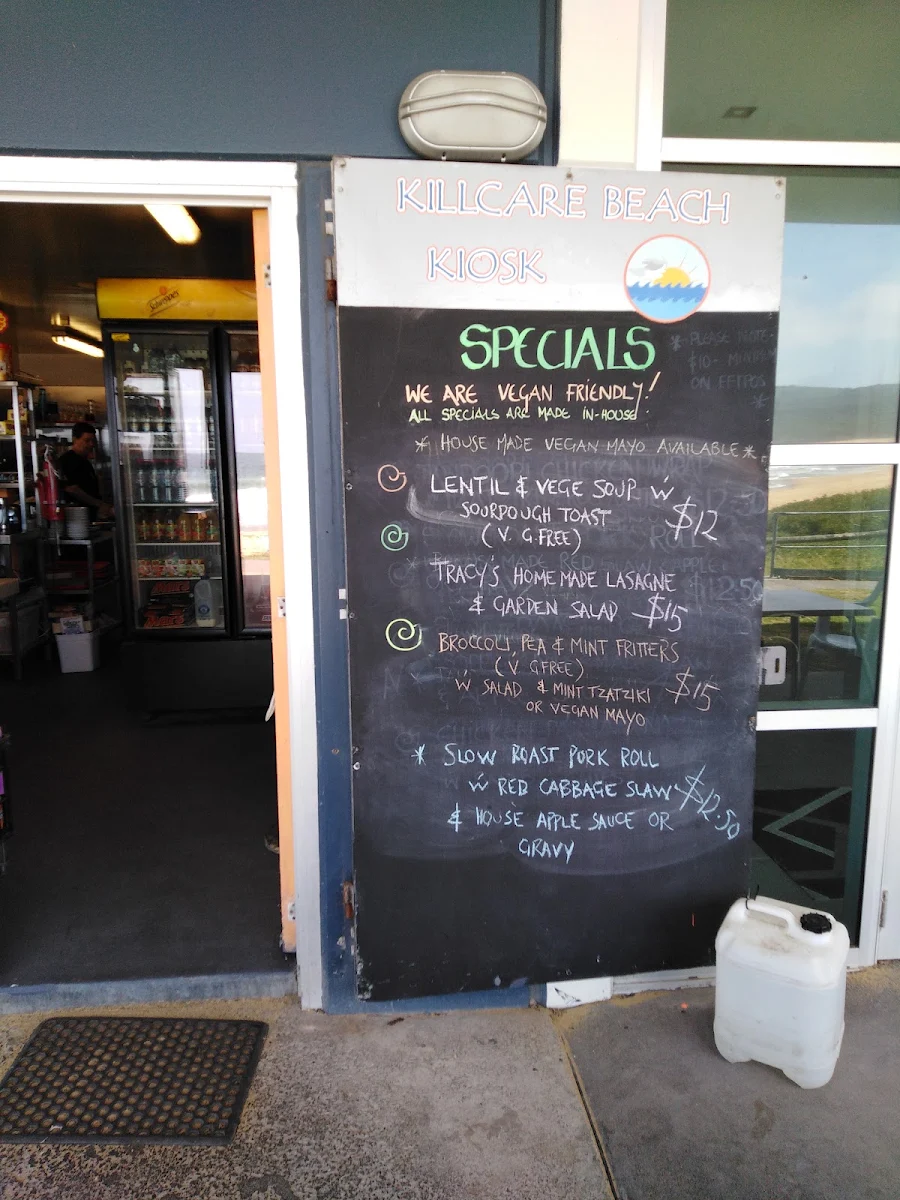 KILLCARE BEACH
KIOSK
SPECIALS
* PLEASE NOTE:
$10- MINIMUM
ON EFTPOS
*
WE ARE VEGAN FRIENDLY!
ALL SPECIALS ARE MADE IN-HOUSE!
* HOUSE MADE VEGAN MAYO AVAILABLE *
LENTIL & VEGE SOUP W
SOURDOUGH TOAST
$12
(V. G.FREE)
TRACY'S HOMEMADE LASAGNE
& GARDEN SALAD $15
BROCCOLI, PEA & MINT FRITTERS
(V. G.FREE)
W SALAD & MINT TZATZIKI $15
OR VEGAN MAYO
* SLOW ROAST PORK ROLL
W RED CABBAGE SLAW $12.50
& HOUSE APPLE SAUCE OR
GRAVY
Schweppes